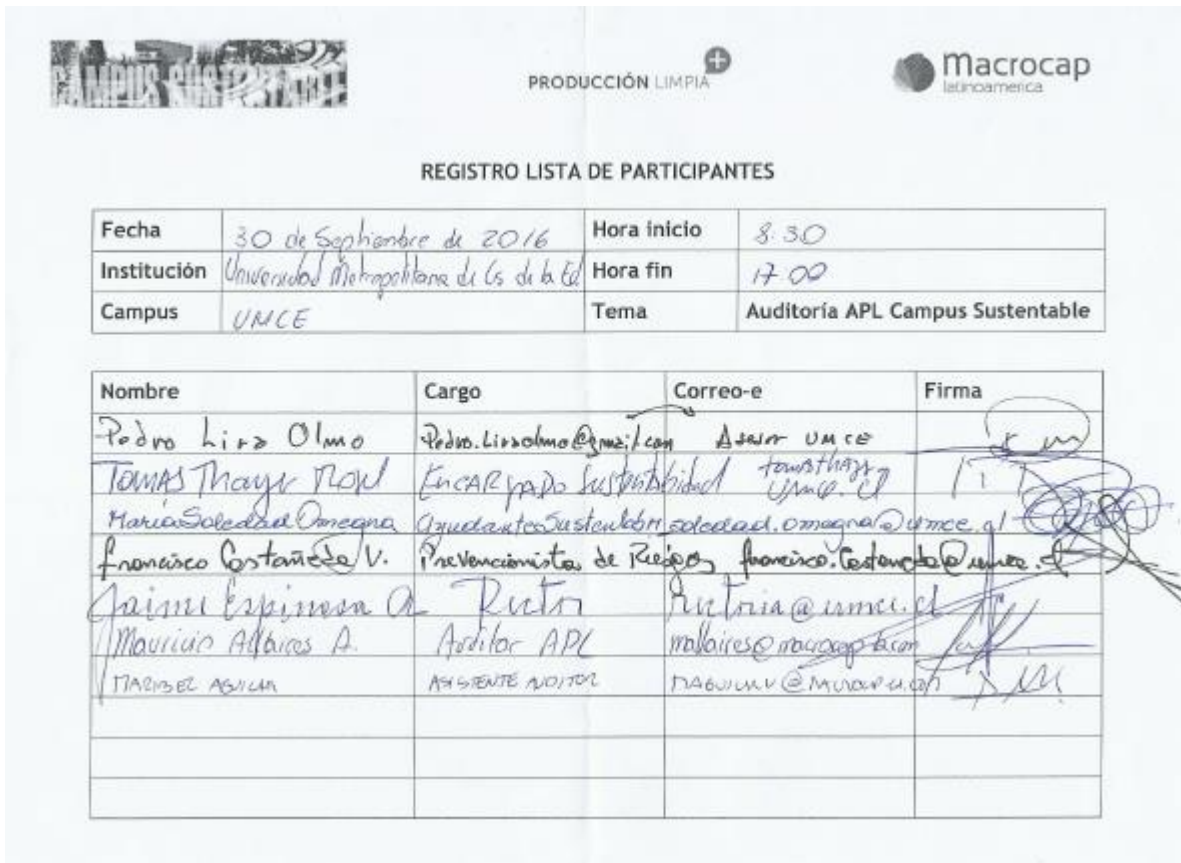 CAMPUS SUSTENTABLE
PRODUCCIÓN LIMPIA
macrocap
latinoamerica
REGISTRO LISTA DE PARTICIPANTES
Fecha 30 de Septiembre de 2016 Hora inicio 8:30
Institución Universidad Metropolitana de Cs de la Ed Hora fin 17 00
Campus UMCE Tema Auditoría APL Campus Sustentable
Nombre Cargo Correo-e Firma
Pedro Lira Olmo Pedro.Liraolmo@gmail.com Asesor UMCE
Tomás Thayer Encargado Sustentabilidad
María Soledad Omegna soledad.omegna@umce.cl
Francisco Castañeda V. Prevencionista de Riesgos francisco.castaneda@umce.cl
Jaime Espinosa Rector rectoria@umce.cl
Mauricio A. Auditor APL
MARIBEL AGUILAR ASISTENTE AUDITOR